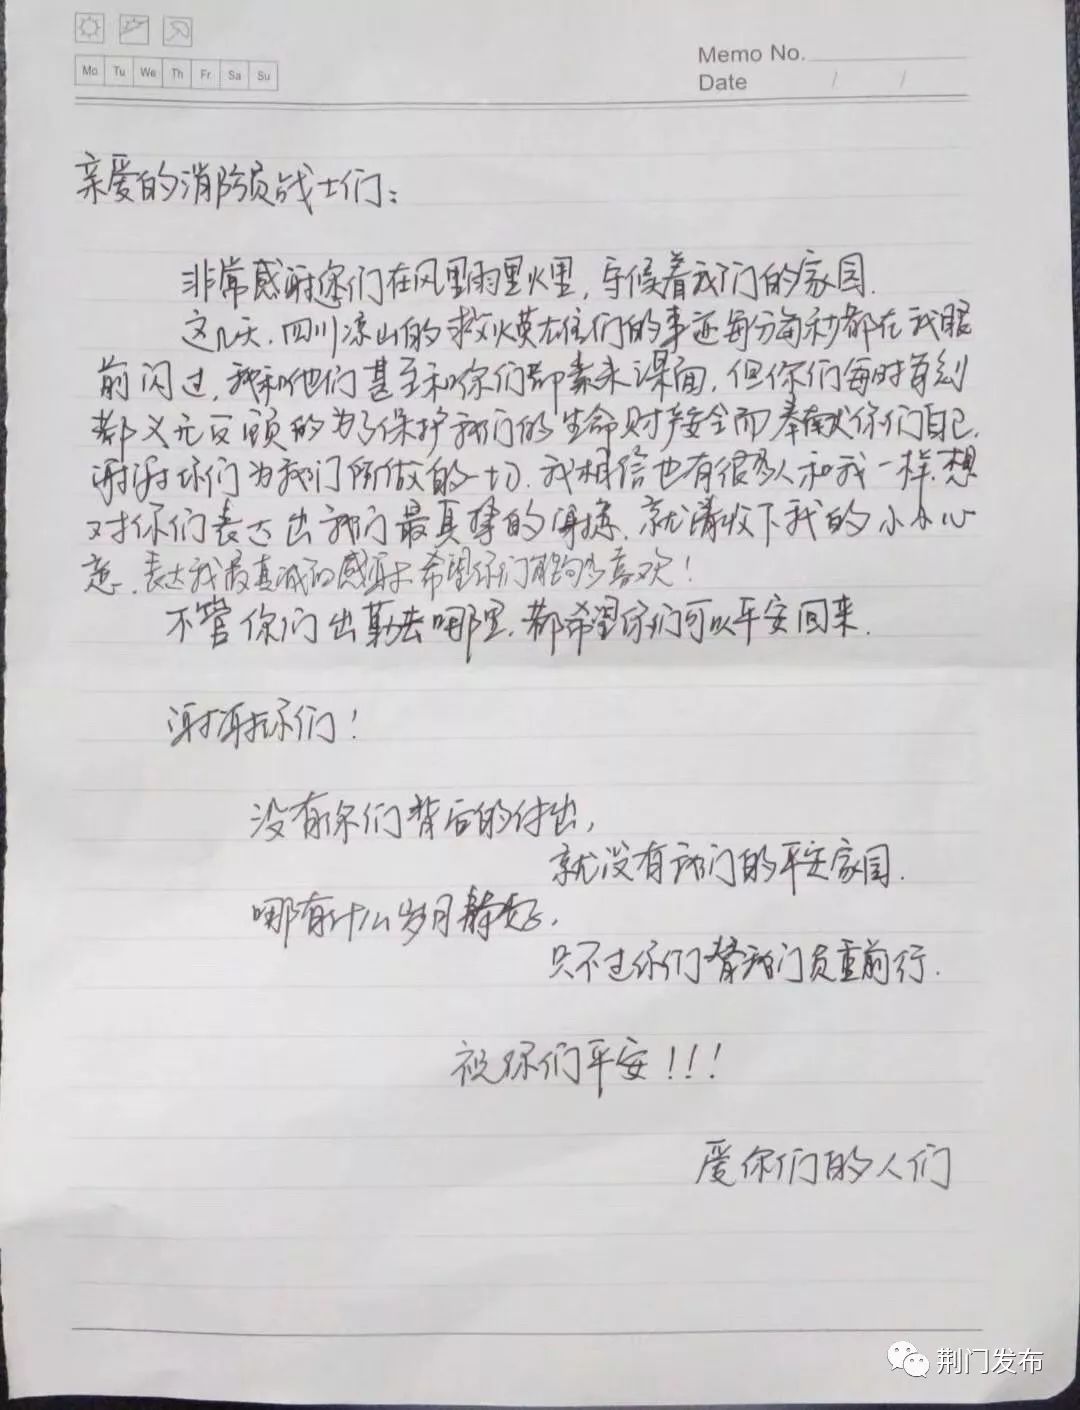 Mo Tu We Th Fr Sa Su
Memo No.
Date / /
亲爱的消防员战士们：
非常感谢你们在风里雨里火里，守候着我们的家园.
这几天，四川凉山的救火英雄们的事迹每分每秒都在我眼
前闪过，我和他们甚至和你们都素未谋面，但你们每时每刻
都义无反顾的为了保护我们的生命财产安全而奉献你们自己.
谢谢你们为我们所做的一切.我相信也有很多人和我一样.想
对你们表达出我们最真挚的.就请收下我的小小心
意.表达我最真诚的感谢希望你们能够喜欢！
不管你们出勤去哪里.都希望你们可以平安回来.
谢谢你们！
没有你们背后的付出，
就没有我们的平安家园.
哪有什么岁月静好.
只不过你们替我们负重前行.
祝你们平安！！！
爱你们的人们
荆门发布